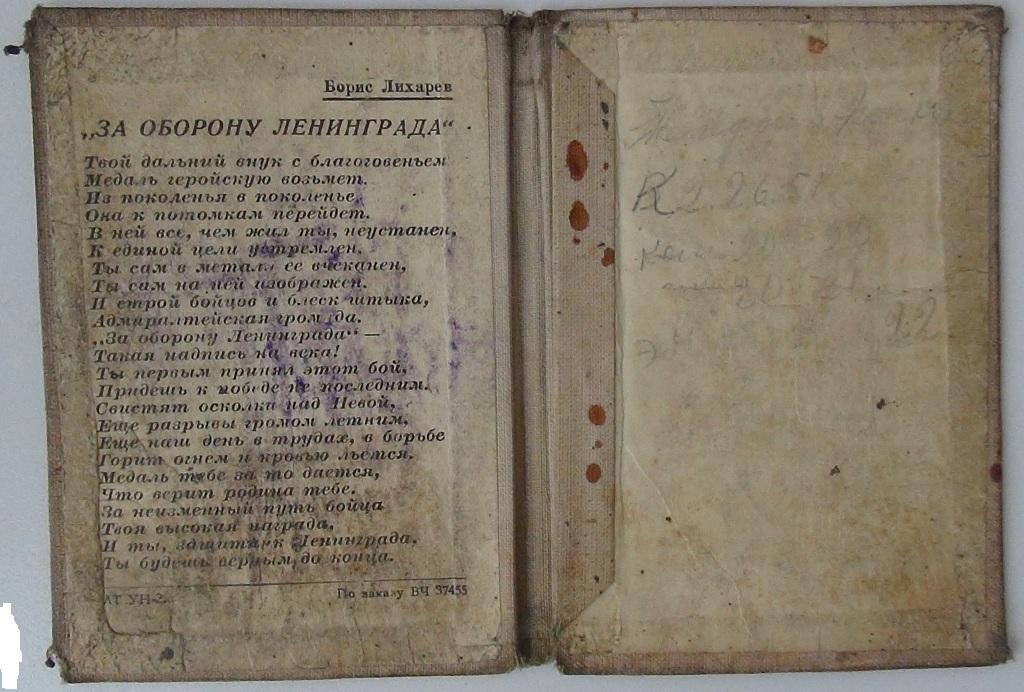 Борис Лихарев
„ЗА ОБОРОНУ ЛЕНИНГРАДА“
Твой дальний внук с благоговеньем
Медаль геройскую возьмет.
Из поколенья в поколенье,
Она к потомкам перейдет.
В ней все, чем жил ты, неустанен,
К единой цели устремлен.
Ты сам в металл ее вчеканен,
Ты сам на ней изображен.
И строй бойцов и блеск штыка,
Адмиралтейская громада.
„За оборону Ленинграда“ —
Такая надпись на века!
Ты первым принял этот бой,
Придешь к победе не последним.
Свистят осколки над Невой,
Еще разрывы громом летним,
Еще наш день в трудах, в борьбе
Горит огнем и кровью льется.
Медаль тебе за то дается,
Что верит родина тебе.
За неизменный путь бойца
Твоя высокая награда,
И ты, защитник Ленинграда,
Ты будешь верным до конца.
АТ УН-2. По заказу ВЧ 37455
2.26.51